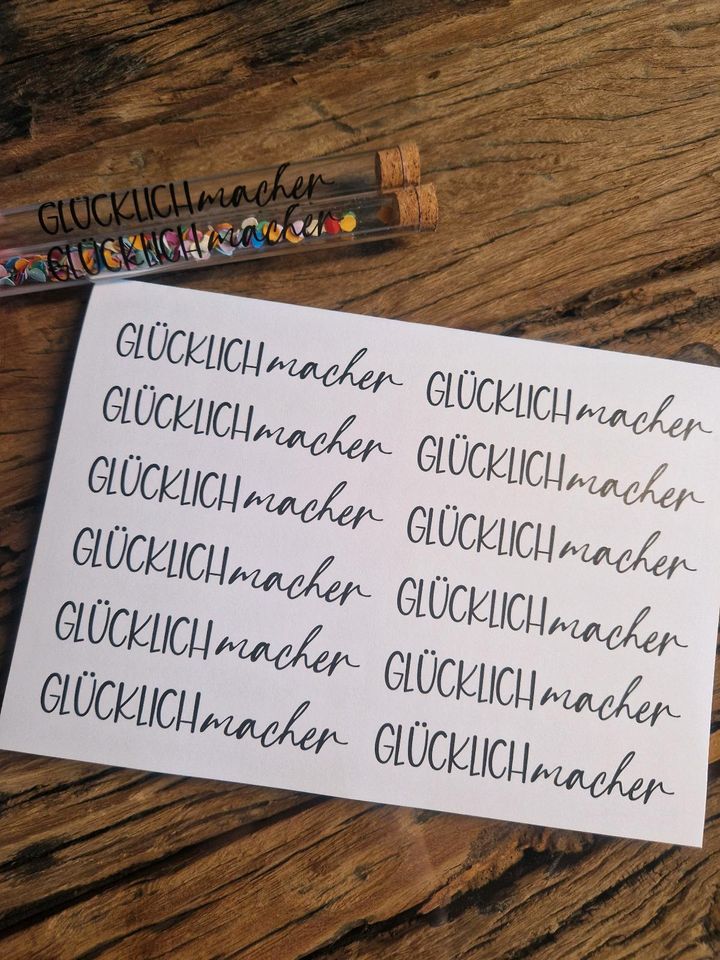 GLÜCKLICHmacher
GLÜCKLICHmacher
GLÜCKLICHmacher GLÜCKLICHmacher
GLÜCKLICHmacher GLÜCKLICHmacher
GLÜCKLICHmacher GLÜCKLICHmacher
GLÜCKLICHmacher GLÜCKLICHmacher
GLÜCKLICHmacher GLÜCKLICHmacher
GLÜCKLICHmacher GLÜCKLICHmacher